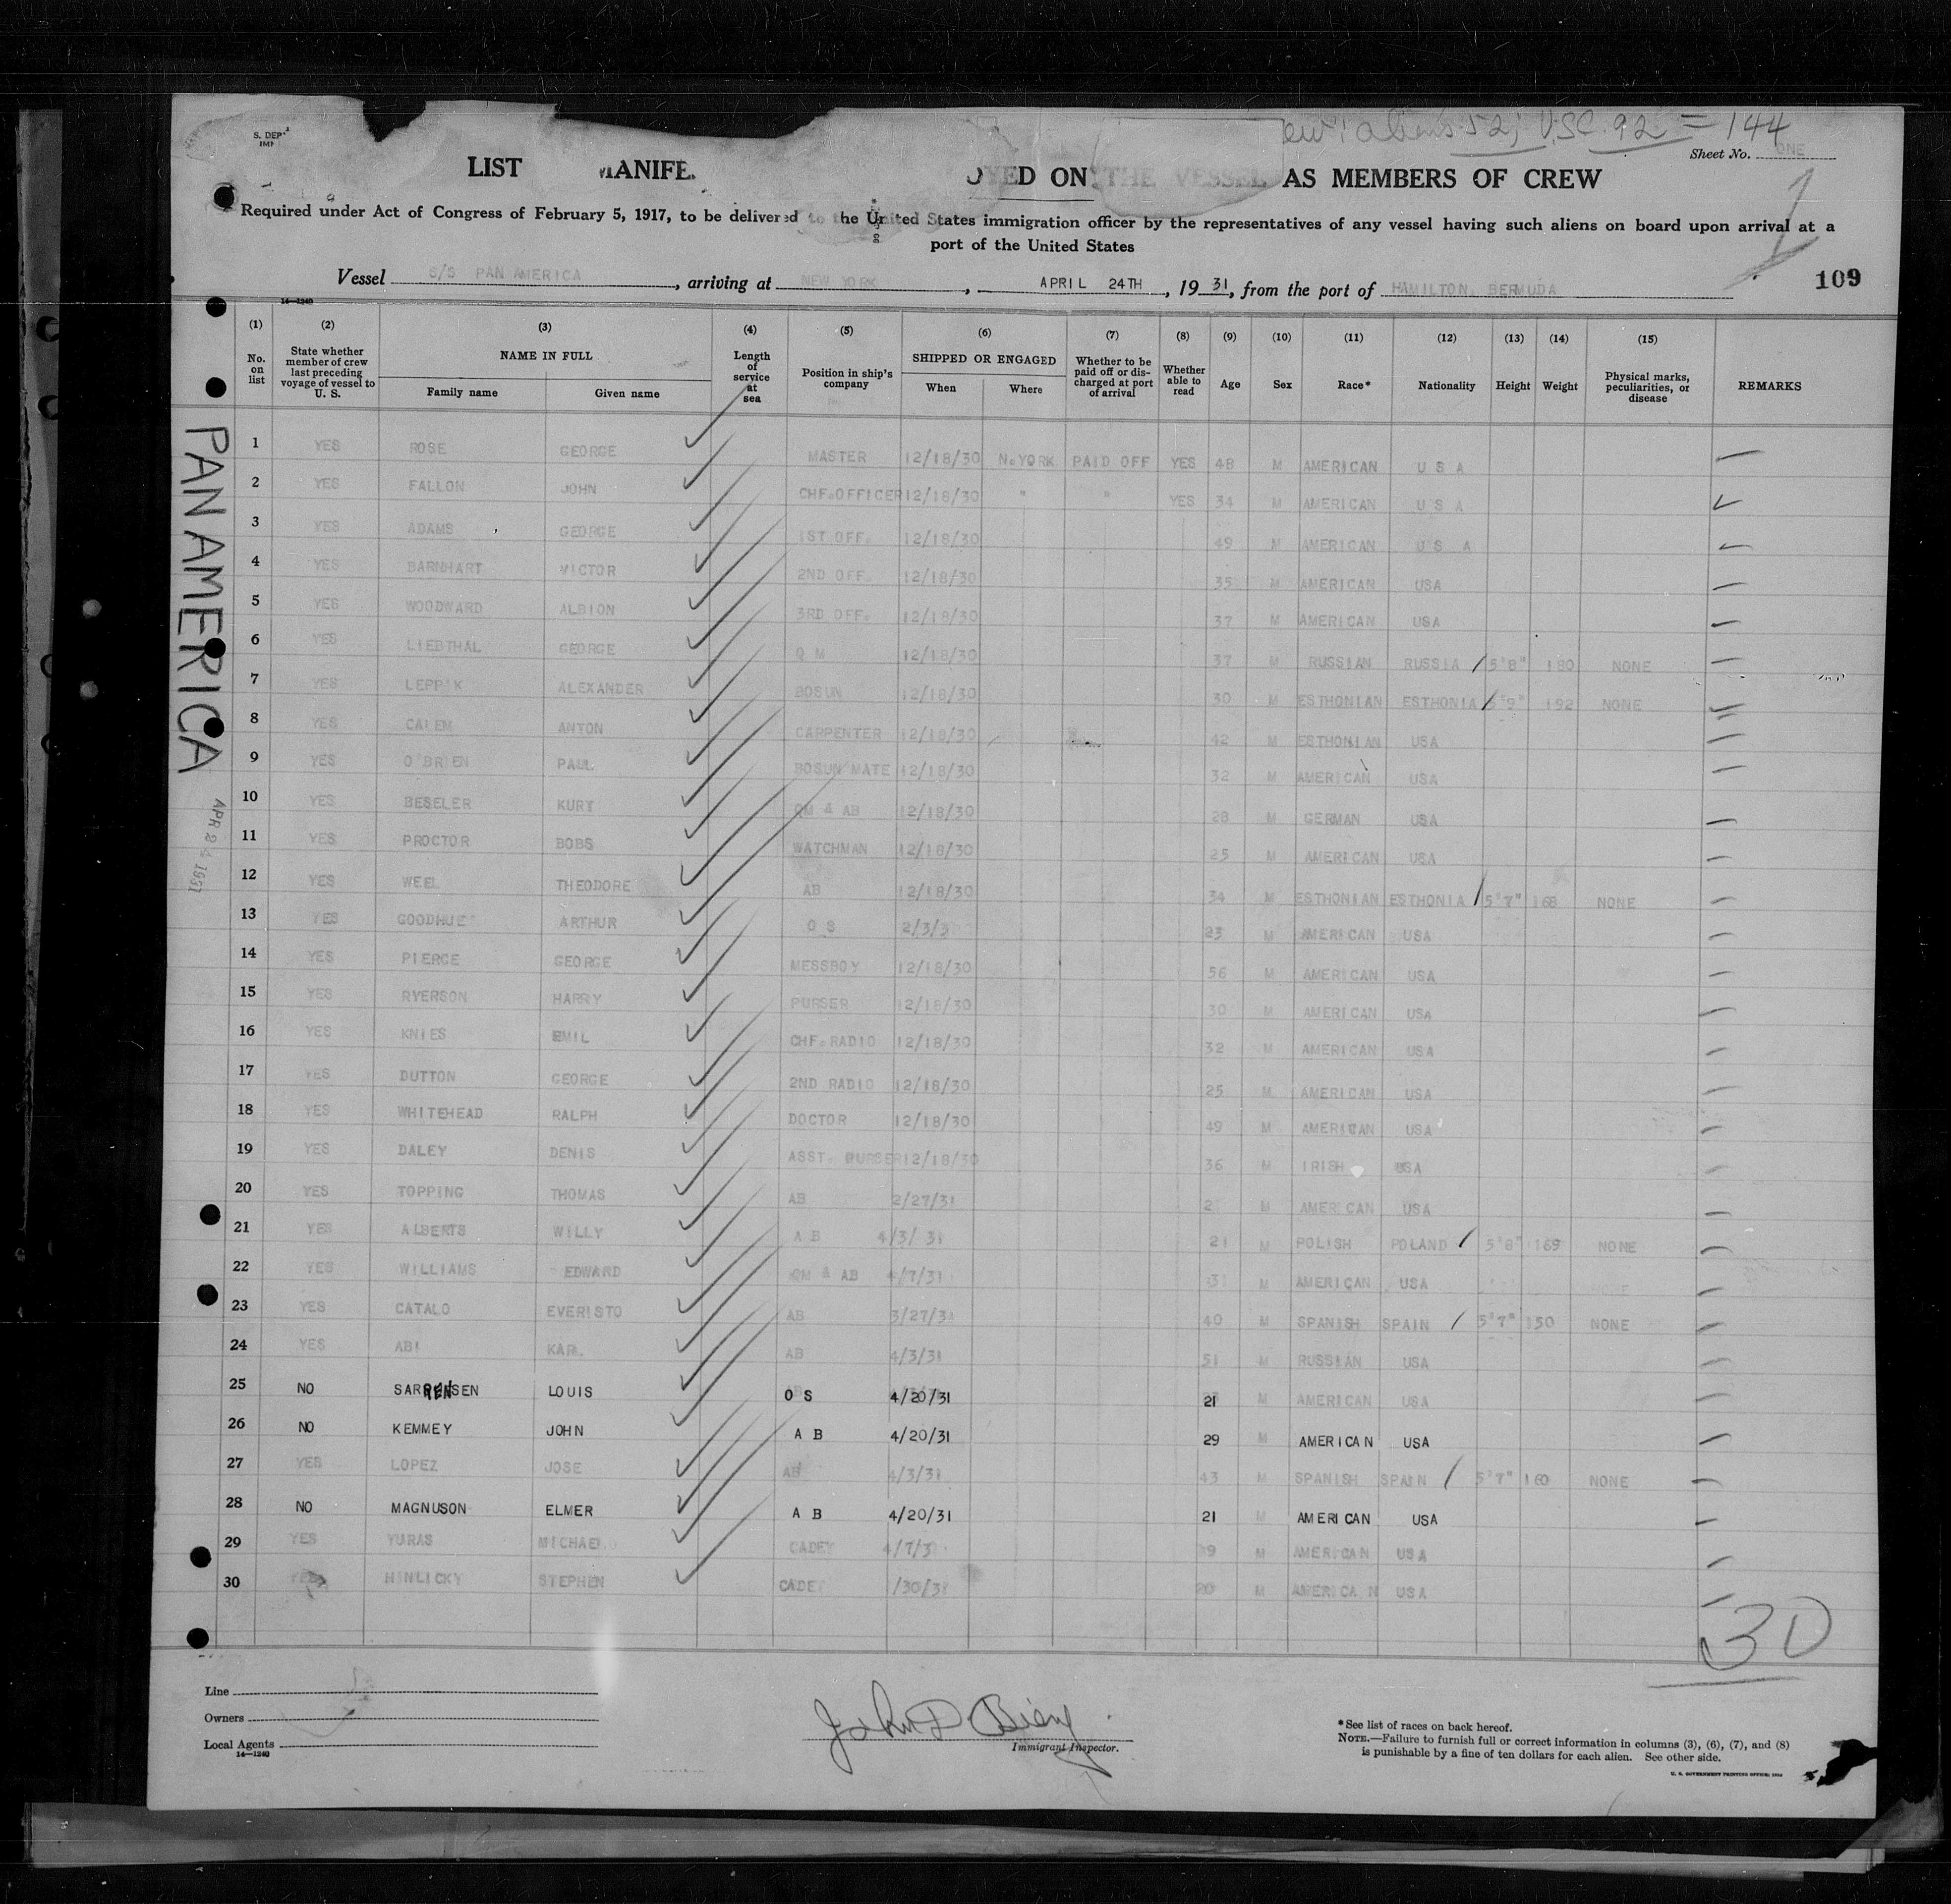 S. DEP
ew: aliens 52; U.S.C. 92 = 144
Sheet No. ONE
LIST MANIFE. OYED ON THE VESSEL AS MEMBERS OF CREW
Required under Act of Congress of February 5, 1917, to be delivered to the United States immigration officer by the representatives of any vessel having such aliens on board upon arrival at a
port of the United States
Vessel S/S PAN AMERICA, arriving at NEW YORK, APRIL 24TH, 19 31, from the port of HAMILTON, BERMUDA
109
14—1240
(1) No. on list (2) State whether member of crew last preceding voyage of vessel to U. S. (3) NAME IN FULL Family name Given name (4) Length of service at sea (5) Position in ship's company (6) SHIPPED OR ENGAGED When Where (7) Whether to be paid off or discharged at port of arrival (8) Whether able to read (9) Age (10) Sex (11) Race* (12) Nationality (13) Height (14) Weight (15) Physical marks, peculiarities, or disease REMARKS
PAN AMERICA
APR 24 1931
1 YES ROSE GEORGE MASTER 12/18/30 N.YORK PAID OFF YES 48 M AMERICAN U S A
2 YES FALLON JOHN CHF.OFFICER 12/18/30 " " YES 34 M AMERICAN U S A
3 YES ADAMS GEORGE 1ST OFF. 12/18/30 49 M AMERICAN U S A
4 YES BARNHART VICTOR 2ND OFF. 12/18/30 35 M AMERICAN USA
5 YES WOODWARD ALBION 3RD OFF. 12/18/30 37 M AMERICAN USA
6 YES LIEBTHAL GEORGE Q M 12/18/30 37 M RUSSIAN RUSSIA 5'8" 180 NONE
7 YES LEPPIK ALEXANDER BOSUN 12/18/30 30 M ESTHONIAN ESTHONIA 5'9" 192 NONE
8 YES CALEM ANTON CARPENTER 12/18/30 42 M ESTHONIAN USA
9 YES O'BRIEN PAUL 12/18/30 BOSUN MATE 32 M AMERICAN USA
10 YES BESELER KURT QM & AB 12/18/30 28 M GERMAN USA
11 YES PROCTOR BOBS WATCHMAN 12/18/30 25 M AMERICAN USA
12 YES WEEL THEODORE AB 12/18/30 34 M ESTHONIAN ESTHONIA 5'7" 168 NONE
13 YES GOODHUE ARTHUR O S 2/3/3 23 M AMERICAN USA
14 YES PIERCE GEORGE MESSBOY 12/18/30 56 M AMERICAN USA
15 YES RYERSON HARRY PURSER 12/18/30 30 M AMERICAN USA
16 YES KNIES EMIL CHF.RADIO 12/18/30 32 M AMERICAN USA
17 YES DUTTON GEORGE 2ND RADIO 12/18/30 25 M AMERICAN USA
18 YES WHITEHEAD RALPH DOCTOR 12/18/30 49 M AMERICAN USA
19 YES DALEY DENIS ASST. PURSER 12/18/30 36 M IRISH USA
20 YES TOPPING THOMAS AB 2/27/31 2 M AMERICAN USA
21 YES ALBERTS WILLY A B 4/3/ 31 21 M POLISH POLAND 5'8" 169 NONE
22 YES WILLIAMS EDWARD QM & AB 4/7/31 31 M AMERICAN USA
23 YES CATALO EVERISTO AB 3/27/31 40 M SPANISH SPAIN 5'7" 150 NONE
24 YES ABI KARL AB 4/3/31 51 M RUSSIAN USA
25 NO SARRENSEN LOUIS O S 4/20/31 21 M AMERICAN USA
26 NO KEMMEY JOHN A B 4/20/31 29 M AMERICAN USA
27 YES LOPEZ JOSE AB 4/3/31 43 M SPANISH SPAIN 5'7" 160 NONE
28 NO MAGNUSON ELMER A B 4/20/31 21 M AMERICAN USA
29 YES YURAS MICHAEL CADET 4/7/3 M AMERICAN USA
30 YES HINLICKY STEPHEN CADET /30/31 20 M AMERICAN USA
30
Line
Owners
Local Agents
14—1240
John D Bieny
Immigrant Inspector.
*See list of races on back hereof.
NOTE.—Failure to furnish full or correct information in columns (3), (6), (7), and (8)
is punishable by a fine of ten dollars for each alien. See other side.
U. S. GOVERNMENT PRINTING OFFICE: